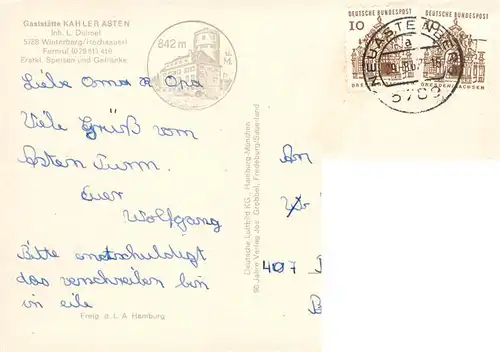 Gaststätte KAHLER ASTEN
Inh. L. Dümel
5788 Winterberg/Hochsauerl.
Fernruf (02981) 410
Erstkl. Speisen und Getränke
842 m
DEUTSCHE BUNDESPOST
DEUTSCHE BUNDESPOST
10
NEUASTENBERG
a
5782
DRESDEN SACHSEN
Liebe Oma + Opa
Viele Grüß vom
Asten Turm.
Euer
Wolfgang
Bitte entschuldigt
das verschreiben bin
in eile
Freig. d. L. A. Hamburg
Deutsche Luftbild KG., Hamburg-München
90 Jahre Verlag Jos. Grobbel, Fredeburg/Sauerland
An
407